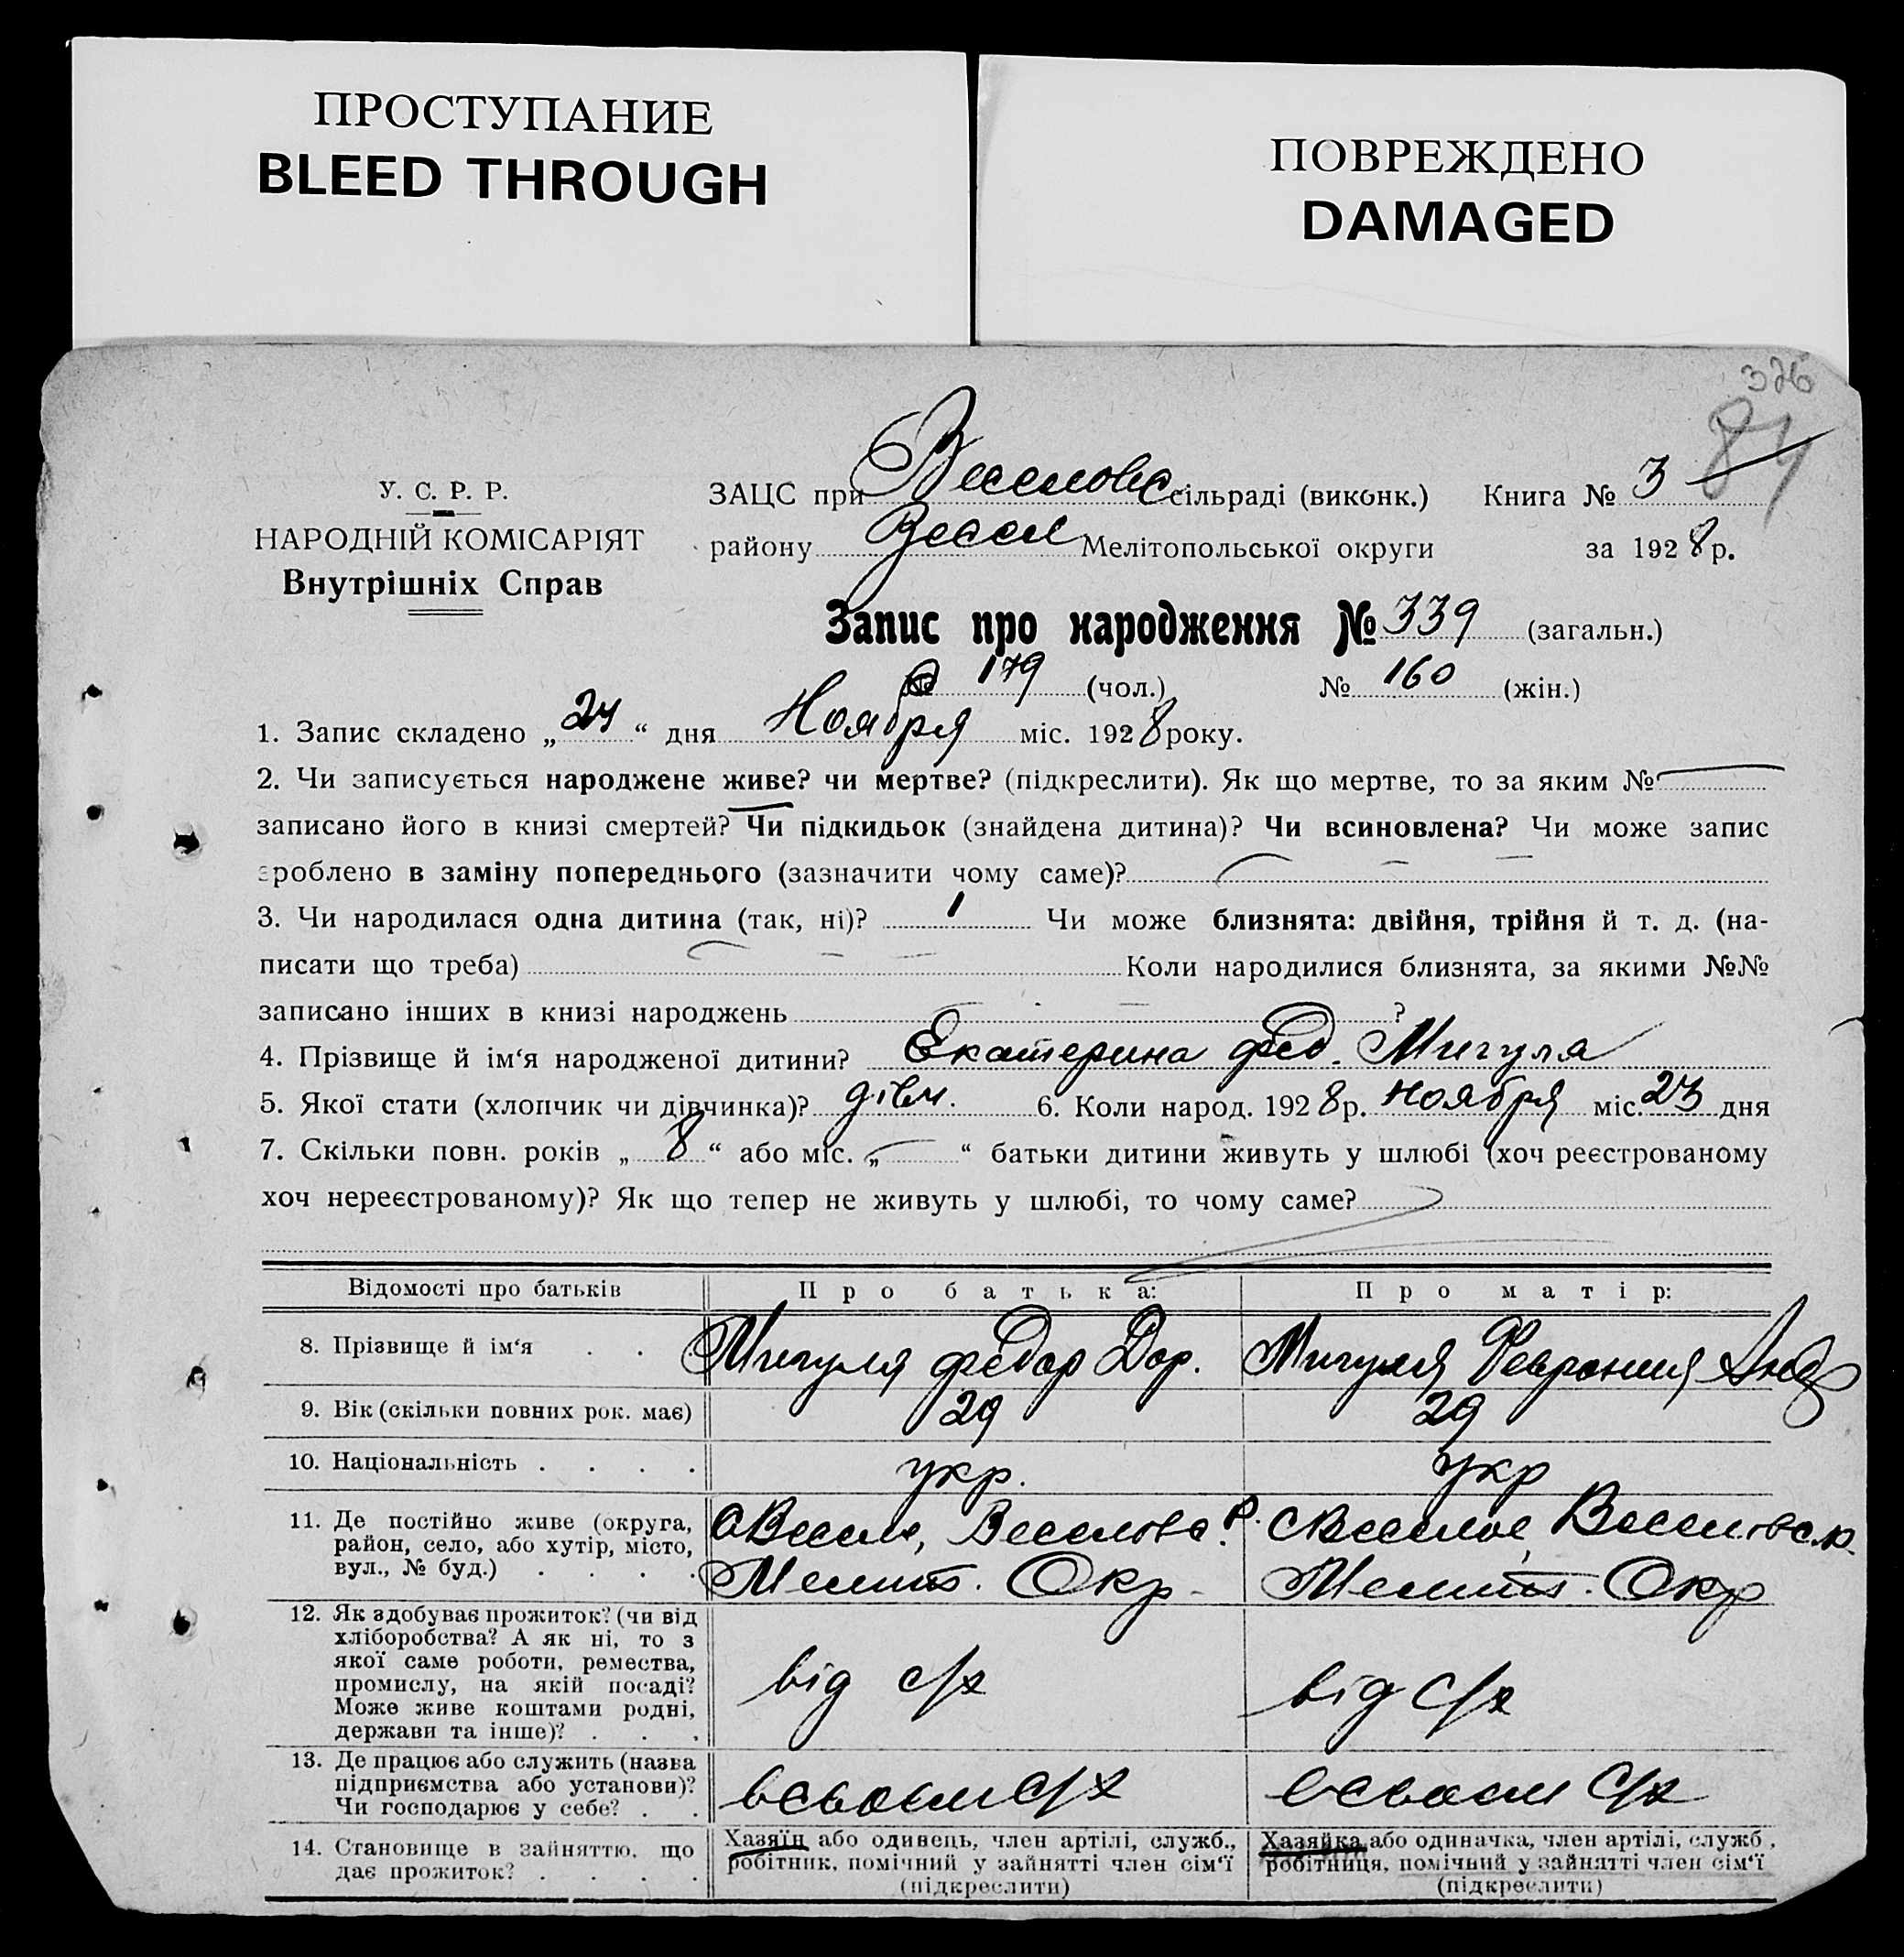 ПРОСТУПАНИЕ
BLEED THROUGH
ПОВРЕЖДЕНО
DAMAGED
326
84
У. С. Р. Р.
НАРОДНІЙ КОМІСАРІЯТ
Внутрішніх Справ
ЗАЦС при Веселовс сільраді (виконк.) Книга № 3
району Весел Мелітопольської округи за 1928 р.
Запис про народження № 339 (загальн.)
№ 179 (чол.) № 160 (жін.)
1. Запис складено „24“ дня Ноября міс. 1928 року.
2. Чи записується народжене живе? чи мертве? (підкреслити). Як що мертве, то за яким №
записано його в книзі смертей? Чи підкидьок (знайдена дитина)? Чи всиновлена? Чи може запис
зроблено в заміну попереднього (зазначити чому саме)?
3. Чи народилася одна дитина (так, ні)? 1 Чи може близнята: двійня, трійня й т. д. (на-
писати що треба) Коли народилися близнята, за якими №№
записано інших в книзі народжень ?
4. Прізвище й ім‘я народженої дитини? Екатерина Фед. Мигуля
5. Якої стати (хлопчик чи дівчинка)? дівч. 6. Коли народ. 1928 р. Ноября міс. 23 дня
7. Скільки повн. років „8“ або міс. „ “ батьки дитини живуть у шлюбі (хоч реєстрованому
хоч нереєстрованому)? Як що тепер не живуть у шлюбі, то чому саме?
Відомості про батьків Про батька: Про матір:
8. Прізвище й ім‘я . . . Мигуля Федор Дор. Мигуля Феврония Анд
9. Вік (скільки повних рок. має) 29 29
10. Національність . . . . укр. укр
11. Де постійно живе (округа, район, село, або хутір, місто, вул., № буд.) . . . .
с Весел, Веселовс. Р. Мелит. Окр.
с Веселое, Веселовс. р. Мелит. Окр
12. Як здобуває прожиток? (чи від хліборобства? А як ні, то з якої саме роботи, ремества, промислу, на якій посаді? Може живе коштами родні, держави та інше)? . . .
від с/х від с/х
13. Де працює або служить (назва підприємства або установи)? Чи господарює у себе? . .
в своєм с/х в своєм с/х
14. Становище в зайняттю, що дає прожиток? . . . .
Хазяїн або одинець, член артілі, служб., робітник, помічний у зайнятті член сім‘ї (підкреслити)
Хазяйка або одиначка, член артілі, служб., робітниця, помічний у зайнятті член сім‘ї (підкреслити)